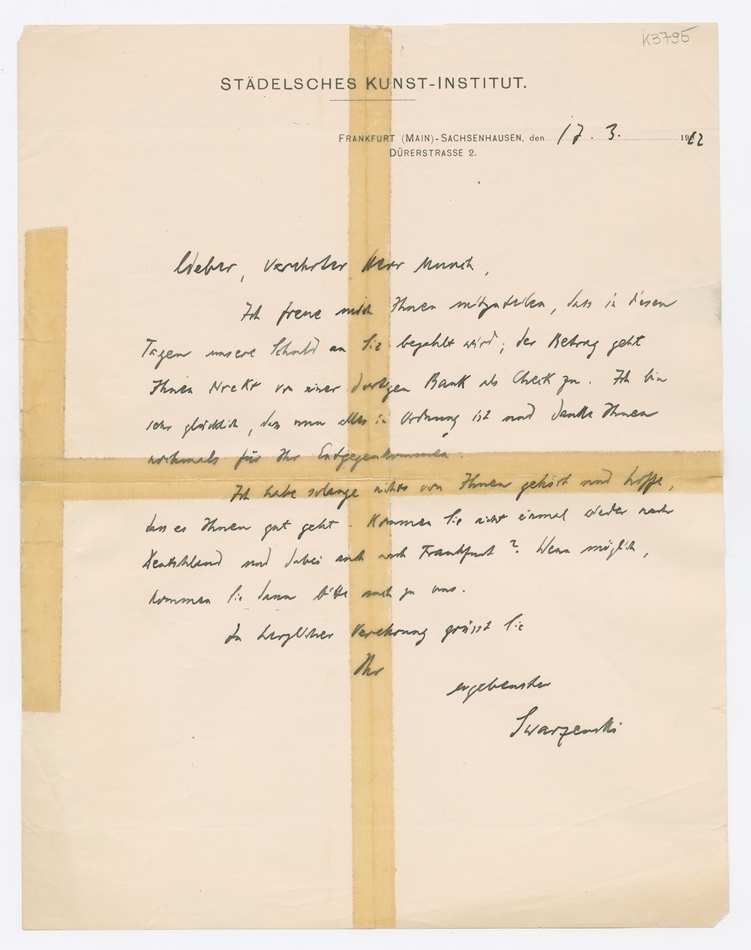 K3795
STÄDELSCHES KUNST-INSTITUT.
FRANKFURT (MAIN)-SACHSENHAUSEN, den 17. 3. 1922
DÜRERSTRASSE 2.
Lieber, verehrter Herr Munch,
Ich freue mich Ihnen mitzuteilen, dass in diesen
Tagen unsere Schuld an Sie bezahlt wird; der Betrag geht
Ihnen direkt von einer dortigen Bank als Check zu. Ich bin
sehr glücklich, dass nun alles in Ordnung ist und danke Ihnen
nochmals für Ihr Entgegenkommen.
Ich habe solange nichts von Ihnen gehört und hoffe,
dass es Ihnen gut geht. Kommen Sie nicht einmal wieder nach
Deutschland und dabei auch nach Frankfurt? Wenn möglich,
kommen Sie dann bitte auch zu uns.
In herzlicher Verehrung grüsst Sie
Ihr
ergebenster
Swarzenski